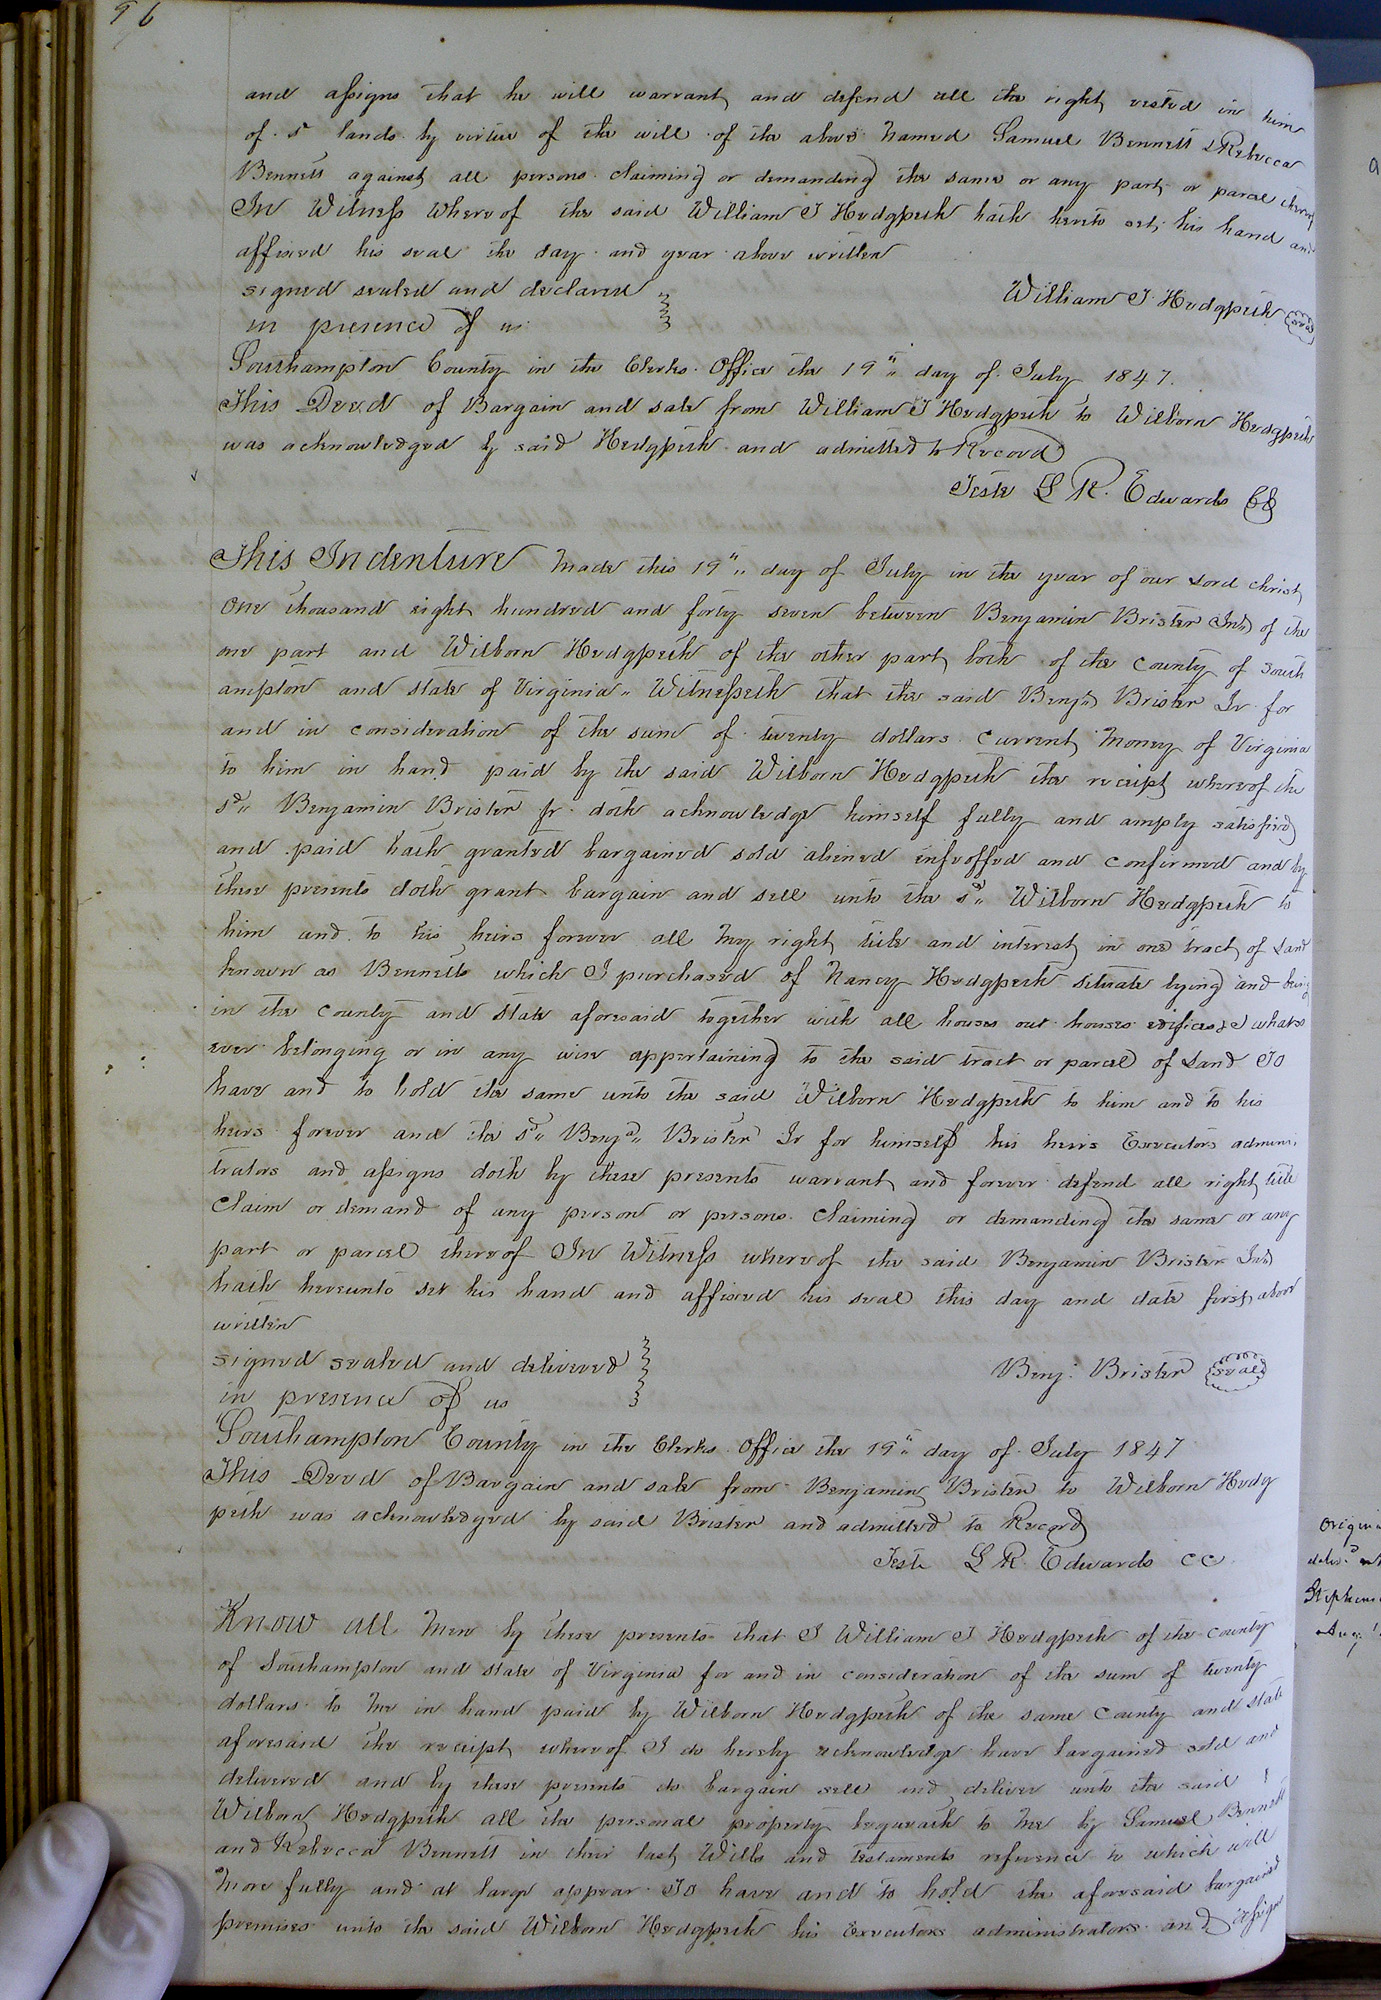 96
and assigns that he will warrant and defend all the right vested in him
of sd lands by virtue of the will of the above named Samuel Bennett & Rebecca
Bennett against all persons claiming or demanding the same or any part or parcel thereof
In Witness Whereof the said William J Hedgpeth hath hereto set his hand and
affixed his seal the day and year above written
signed sealed and declared
in presence of us
William J Hedgpeth seal
Southampton County in the Clerks Office the 19th day of July 1847.
This Deed of Bargain and sale from William J Hedgpeth to Wilborn Hedgpeth
was acknowledged by said Hedgpeth and admitted to Record
Teste L R. Edwards CC
This Indenture Made this 19th day of July in the year of our Lord Christ
One thousand eight hundred and forty seven between Benjamin Brister Jnr of the
one part and Wilborn Hedgpeth of the other part both of the County of South
ampton and state of Virginia Witnesseth that the said Benjn Brister Jr for
and in consideration of the sum of twenty dollars current Money of Virginia
to him in hand paid by the said Wilborn Hedgpeth the receipt whereof the
sd Benjamin Brister jr doth acknowledge himself fully and amply satisfied
and paid hath granted bargained sold aliened infeoffed and confirmed and by
these presents doth grant bargain and sell unto the sd Wilborn Hedgpeth to
him and to his heirs forever all my right title and interest in one tract of Land
known as Bennetts which I purchased of Nancy Hedgpeth situate lying and being
in the County and state aforesaid together with all houses out houses edifices &c whats
ever belonging or in any wise appertaining to the said tract or parcel of Land To
have and to hold the same unto the said Wilborn Hedgpeth to him and to his
heirs forever and the sd Benjn Brister Jr for himself his heirs Executors adminis
trators and assigns doth by these presents warrant and forever defend all right title
Claim or demand of any person or persons claiming or demanding the same or any
part or parcel thereof In Witness whereof the said Benjamin Brister Jnr
hath hereunto set his hand and affixed his seal this day and date first above
written
signed sealed and delivered
in presence of us
Benj. Brister seal
Southampton County in the Clerks Office the 19th day of July 1847
This Deed of Bargain and sale from Benjamin Brister to Wilborn Hedg
peth was acknowledged by said Brister and admitted to Record
Teste L R. Edwards CC
Know all Men by these presents that I William J Hedgpeth of the County
of Southampton and state of Virginia for and in consideration of the sum of twenty
dollars to me in hand paid by Wilborn Hedgpeth of the same County and state
aforesaid the receipt whereof I do hereby acknowledge have bargained sold and
delivered and by these presents do bargain sell and deliver unto the said
Wilborn Hedgpeth all the personal property bequeath to me by Samuel Bennett
and Rebecca Bennett in their last Wills and testaments reference to which will
More fully and at large appear To have and to hold the aforesaid bargained
premises unto the said Wilborn Hedgpeth his Executors administrators and assigns